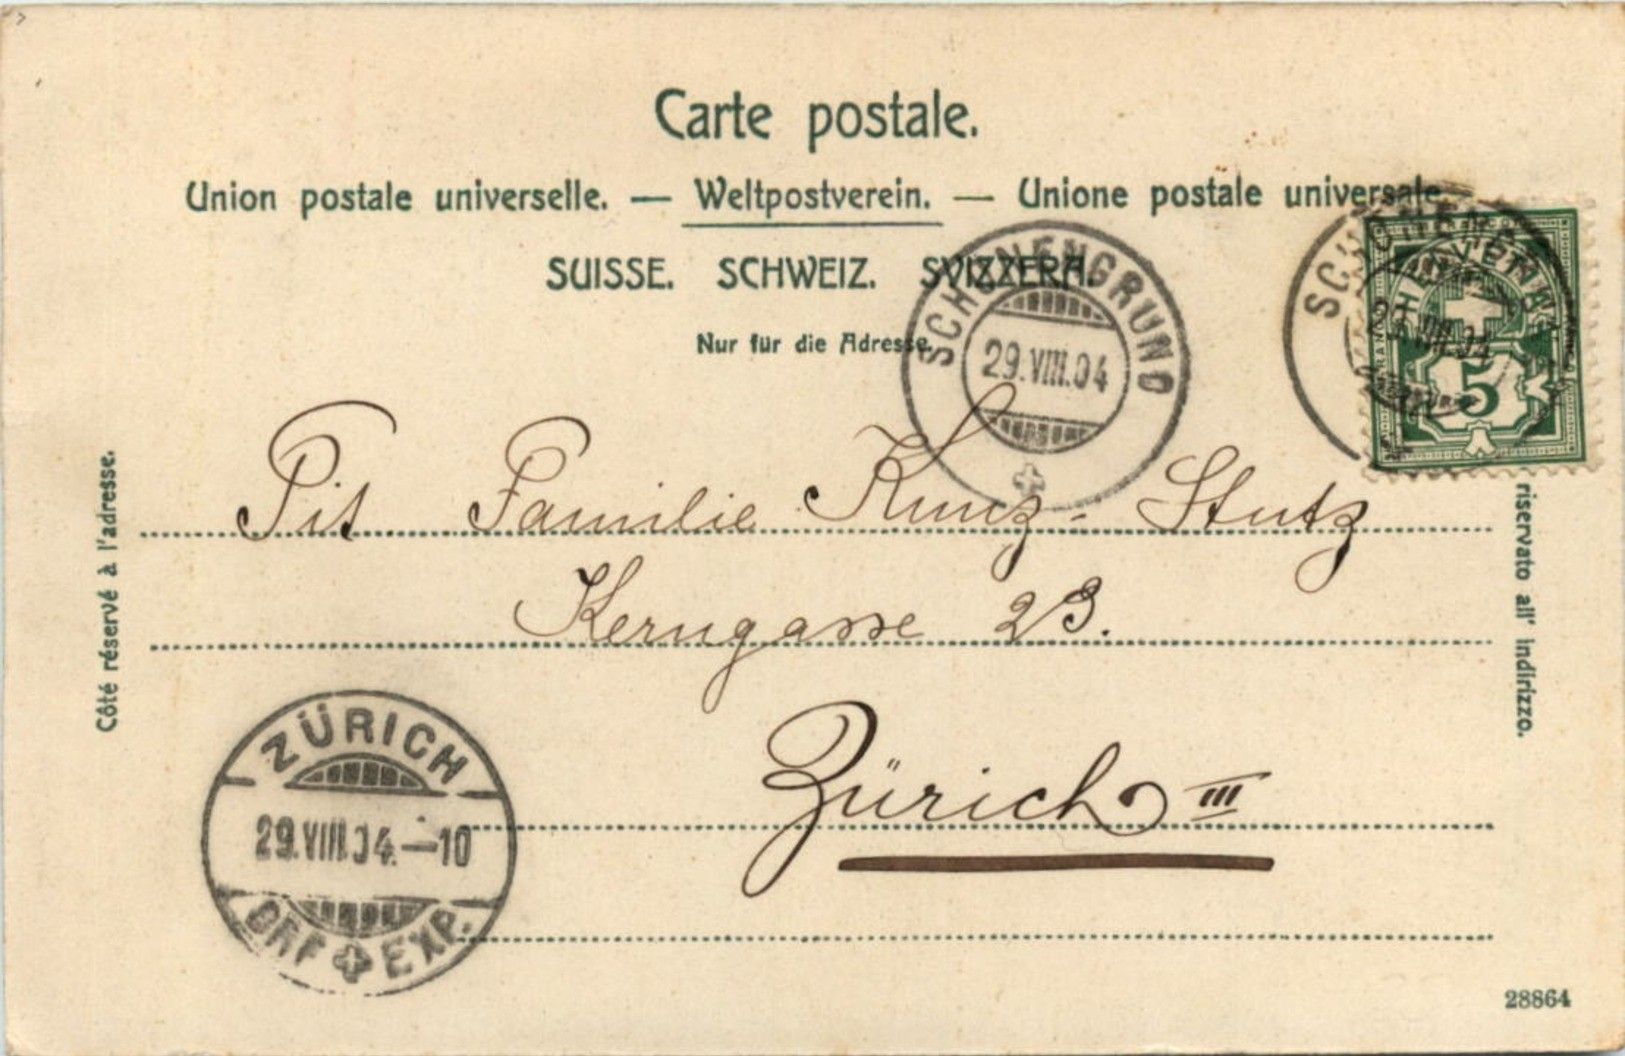 Carte postale.
Union postale universelle. — Weltpostverein. — Unione postale universale
SUISSE. SCHWEIZ. SVIZZERA.
Nur für die Adresse.
SCHÖNENGRUND
29.VIII.04
SCHÖNEN
VIII.04
5
Côté réservé à l'adresse.
riservato all' indirizzo.
Tit. Familie Kunz-Stutz
Kerngasse 23.
Zürich III
ZÜRICH
29.VIII.04.—10
BRF EXP.
28864